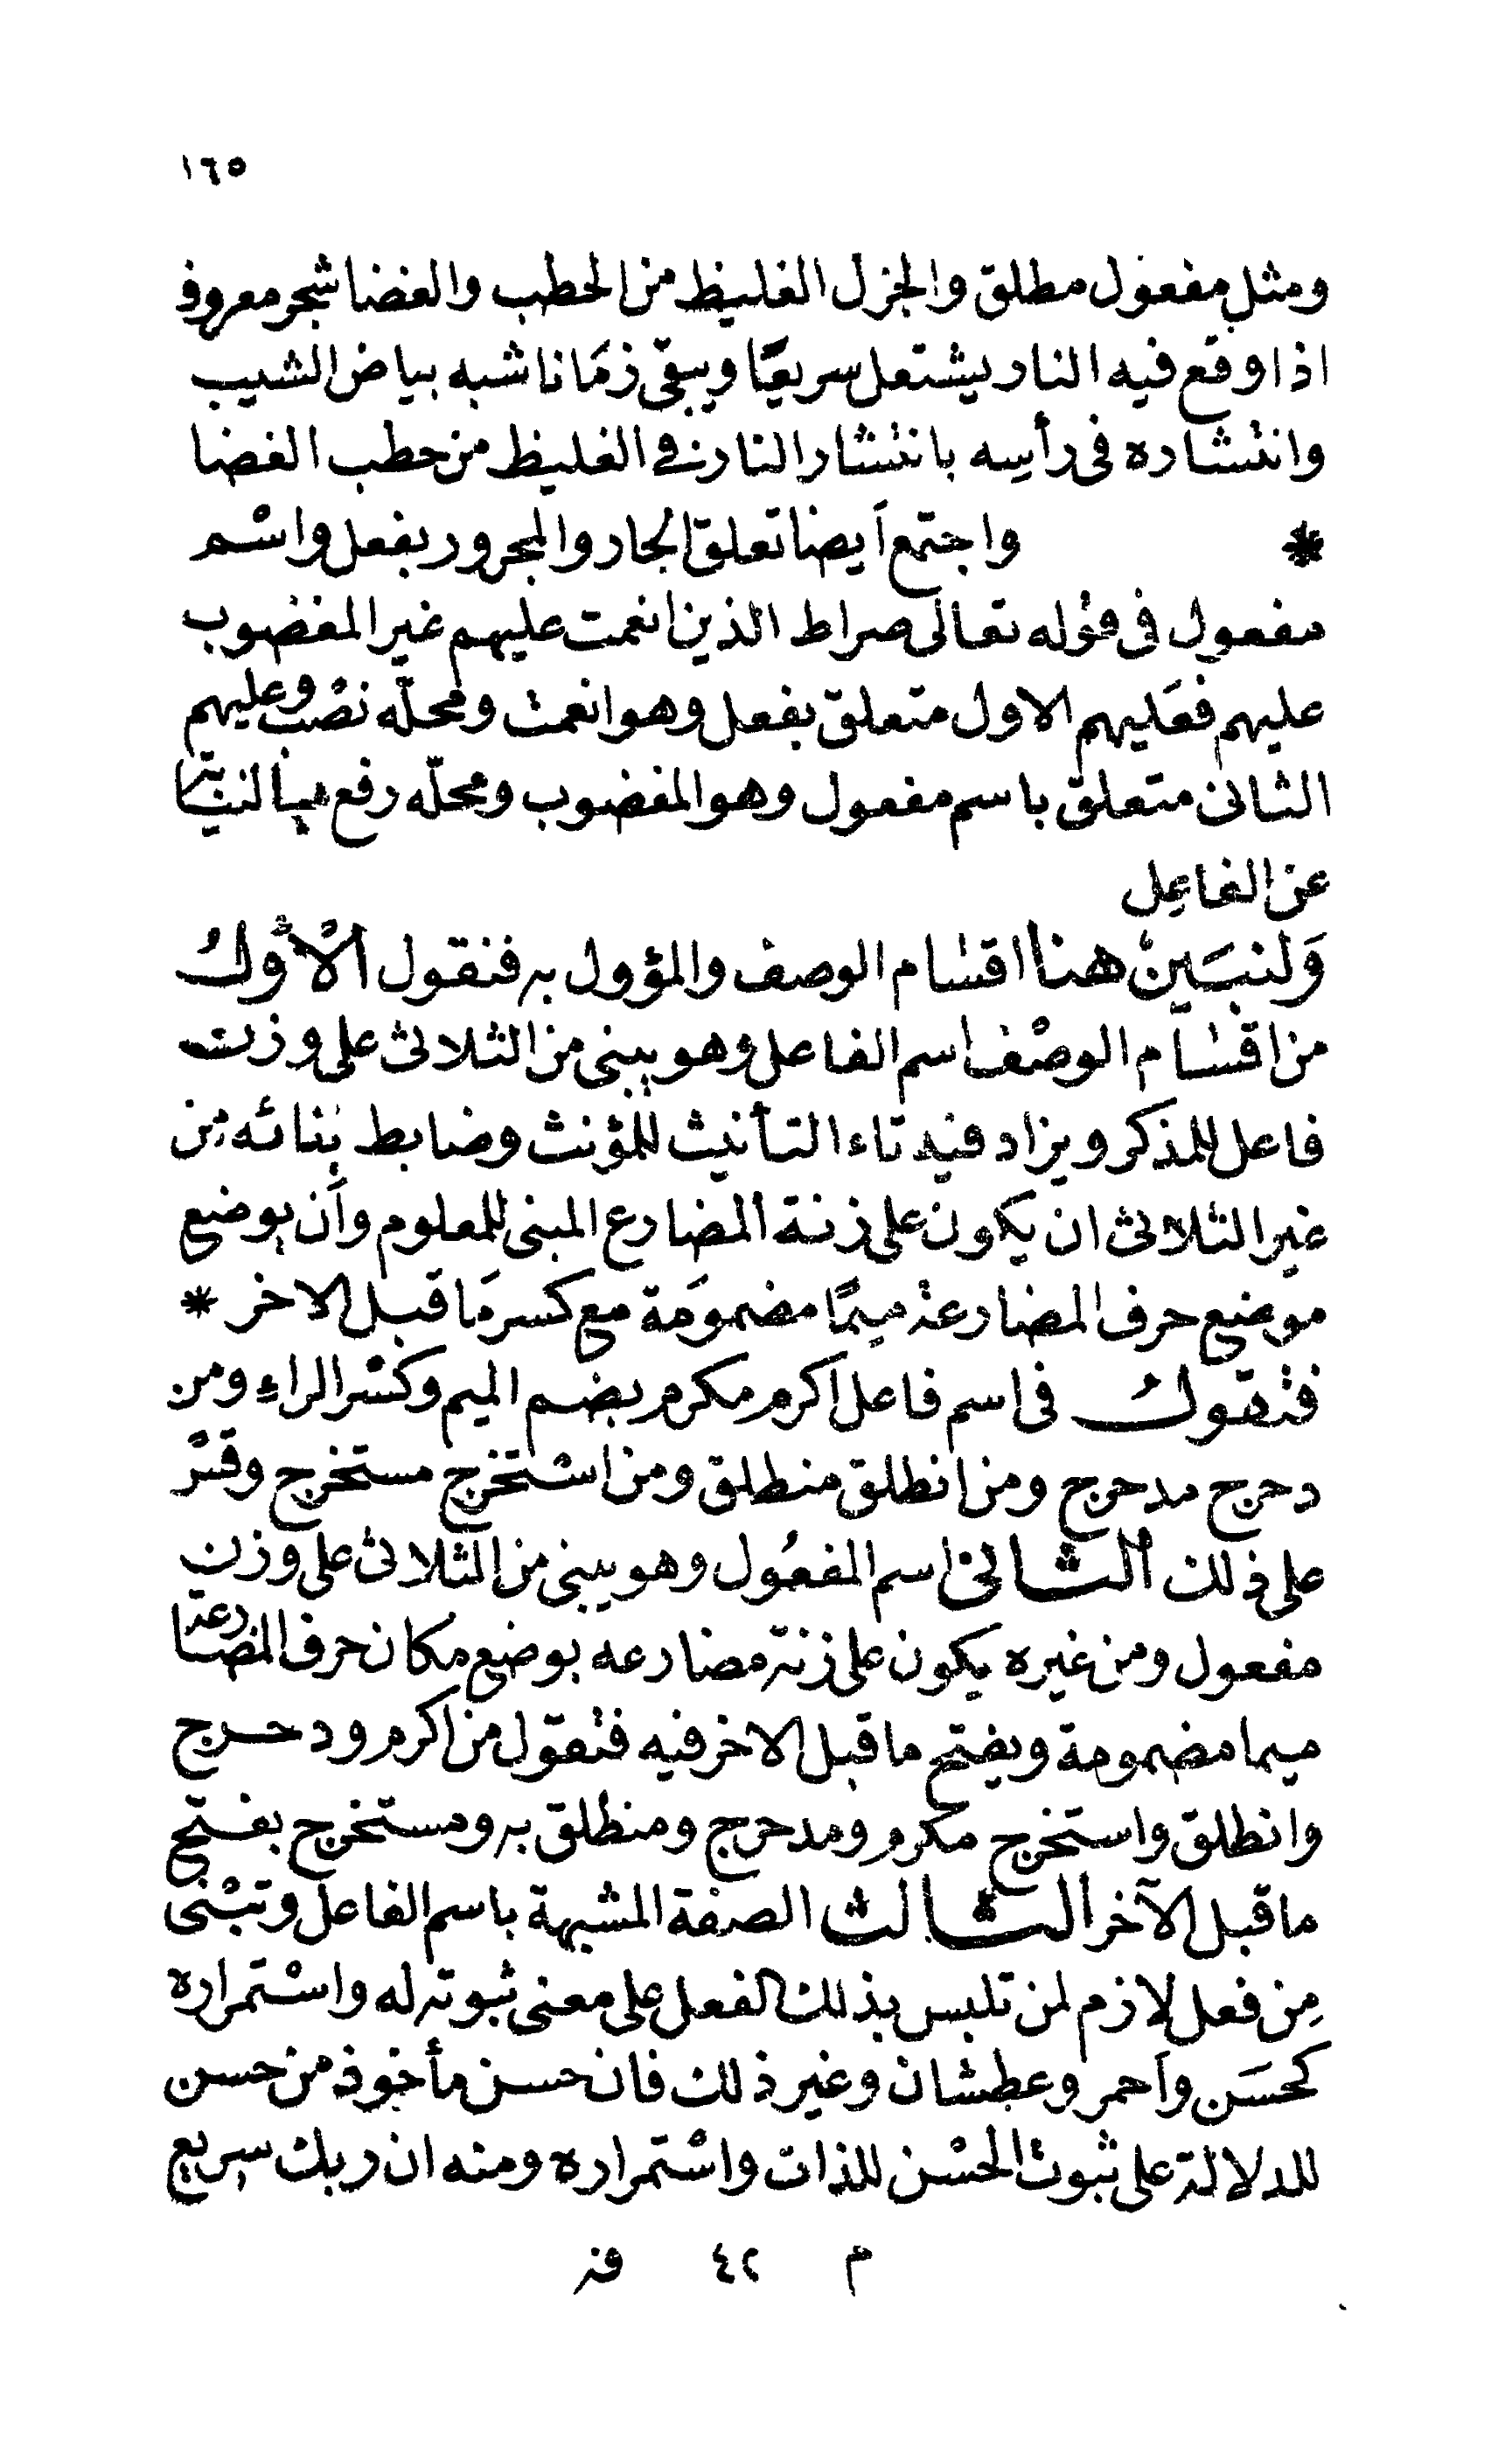 ١٦٥
ومثل مفعول مطلق والجزل الغليظ من الحطب والغضا شجر معروف
اذا وقع فيه النار يشتعل سريعًا ويبقى زمَانا شبه بياض الشيب
وانتشاره فى رأسِه بانتشار النار فے الغليظ من حطب الغضا
* واجتمع اَيضا تعلق الجار والمجرور بفعل واسْم
مفعول فى قوْله تعالى صراط الذين انعمت عليهم غير المغضوب
عليهم فعَليهم الاول متعلق بفعل وهو انعمت ومحلّه نصْب وعليهم
الثانى متعلق باسم مفعول وهو المغضوب ومحلّه رفع بالنيابة
عن الفاعِل
وَلنبيَنْ هنا اقسَام الوصف والمؤول به فنقول الْأَوّلُ
من اقسَام الوصْف اسم الفاعل وهو يبنى من الثلاثى على وزن
فاعل للمذكر ويزاد فيه تاء التأنيث للمؤنث وضابط بنائه مِن
غير الثلاثى ان يكون على زنة المضارع المبنى للمعلوم واَن يوضع
موضع حرف المضارعة ميمًا مضمومَة مع كسر مَا قبل الاخر *
فتقولُ فى اسم فاعل اكرم مكرم بضم الميم وكسْر الراءِ ومن
دحرج مدحرج ومن انطلق منطلق ومن استخرج مستخرج وقسْ
على ذلك الثانى اسم المفعُول وهو يبنى من الثلاثى على وزن
مفعول ومن غيره يكون على زنة مضارعه بوضع مكان حرف المضارعة
ميما مضمومة ويفتح ما قبل الاخر فيه فتقول من اكرم ودحرج
وانطلق واستخرج مكرم ومدحرج ومنطلق به ومستخرج بفتح
ما قبل الآخر الثالث الصفة المشبهة باسم الفاعل وتبْنى
مِن فعل لازم لمن تلبس بذلك الفعل على معنى ثبوته له واسْتمراره
كحسَن واَحمر وعطشان وغير ذلك فان حسن مأخوذ من حسن
للدلالة على ثبوت الحسْن للذات واسْتمراره ومنه ان ربك سريع
م ٤٢ فز